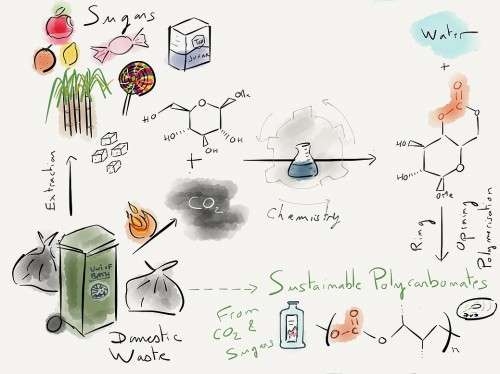 Sugars
T&L
SUGAR
Water
+
O
O
O
HO
HO
OMe
O
OMe
HO
HO
OH
OH
+
Extraction
CO2
Chemistry
Ring
Opening
Polymerisation
UNI OF
BATH
Domestic
Waste
Sustainable Polycarbonates
From
CO2 &
Sugars
O
O
O
n